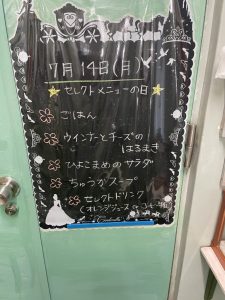 7月14日(月)
セレクトメニューの日
ごはん
ウインナーとチーズの
はるまき
ひよこまめのサラダ
ちゅうかスープ
セレクトドリンク
(オレンジジュース or コーヒー牛乳)